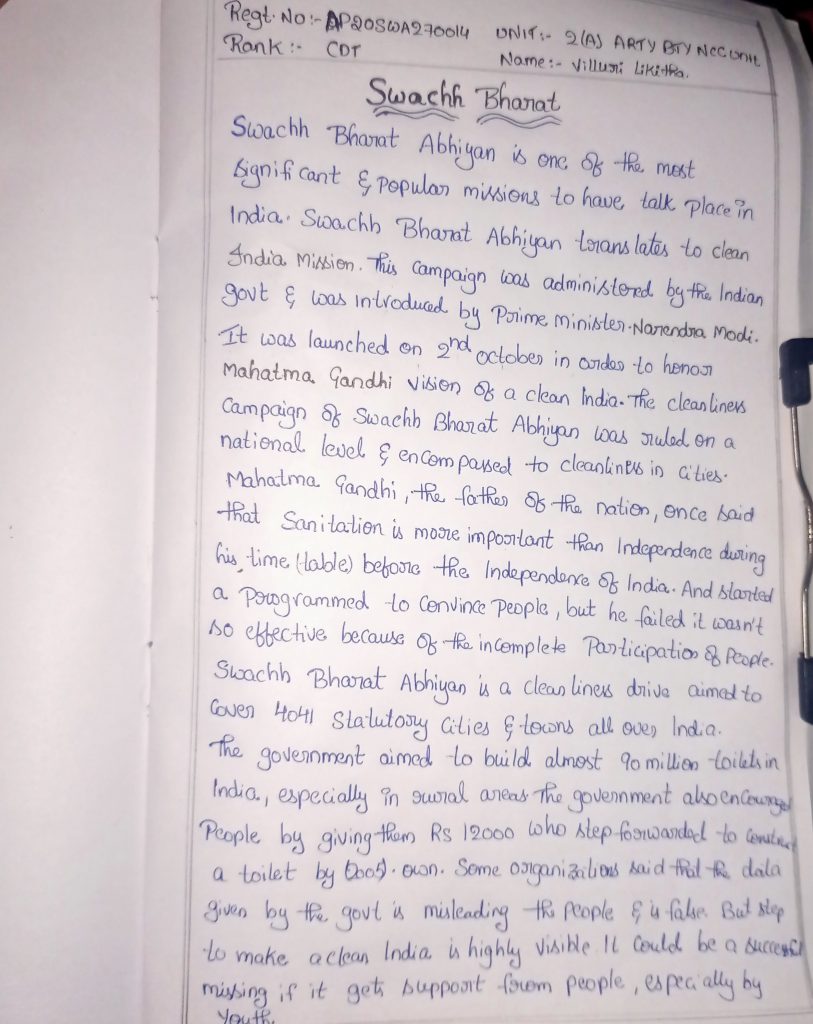 Regt. No:- AP20SWA270014 UNIT:- 2(A) ARTY BTY NCC UNIT
Rank:- CDT Name:- Villuri Likitha.
Swachh Bharat
Swachh Bharat Abhiyan is one of the most
significant & popular missions to have talk place in
India. Swachh Bharat Abhiyan translates to clean
India Mission. This campaign was administered by the Indian
govt & was introduced by Prime minister. Narendra Modi.
It was launched on 2nd october in order to honour
Mahatma Gandhi vision of a clean India. The cleanliness
Campaign of Swachh Bharat Abhiyan was ruled on a
national level & encompassed to cleanliness in cities.
Mahatma Gandhi, the father of the nation, once said
that Sanitation is more important than Independence during
his time (table) before the Independence of India. And started
a programmed to Convince People, but he failed it wasn't
so effective because of the incomplete Participation of People.
Swachh Bharat Abhiyan is a cleanliness drive aimed to
Cover 4041 Statutory Cities & towns all over India.
The government aimed to build almost 90 million toilets in
India, especially in rural areas The government also encouraged
People by giving them Rs 12000 who step forwarded to construct
a toilet by own. Some organizations said that the data
given by the govt is misleading the people & is false. But step
to make a clean India is highly visible It Could be a successful
missing if it gets support from people, especially by
Youth.